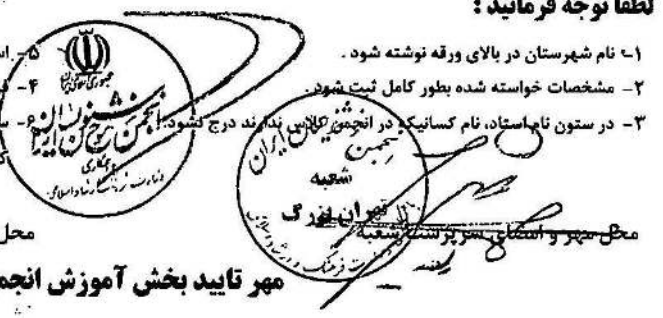 لطفا توجه فرمائید :
۱- نام شهرستان در بالای ورقه نوشته شود .
۲- مشخصات خواسته شده بطور کامل ثبت شود.
۳- در ستون نام استاد، نام کسانیکه در انجمن کلاس ندارند درج نشود.
۵- اس
۴-
۶-
جمهوری اسلامی ایران
انجمن خوشنویسان ایران
انجمن خوشنویسان ایران
شعبه
تهران بزرگ
محل مهر و امضای سرپرست شعبه
محل
مهر تایید بخش آموزش انجم